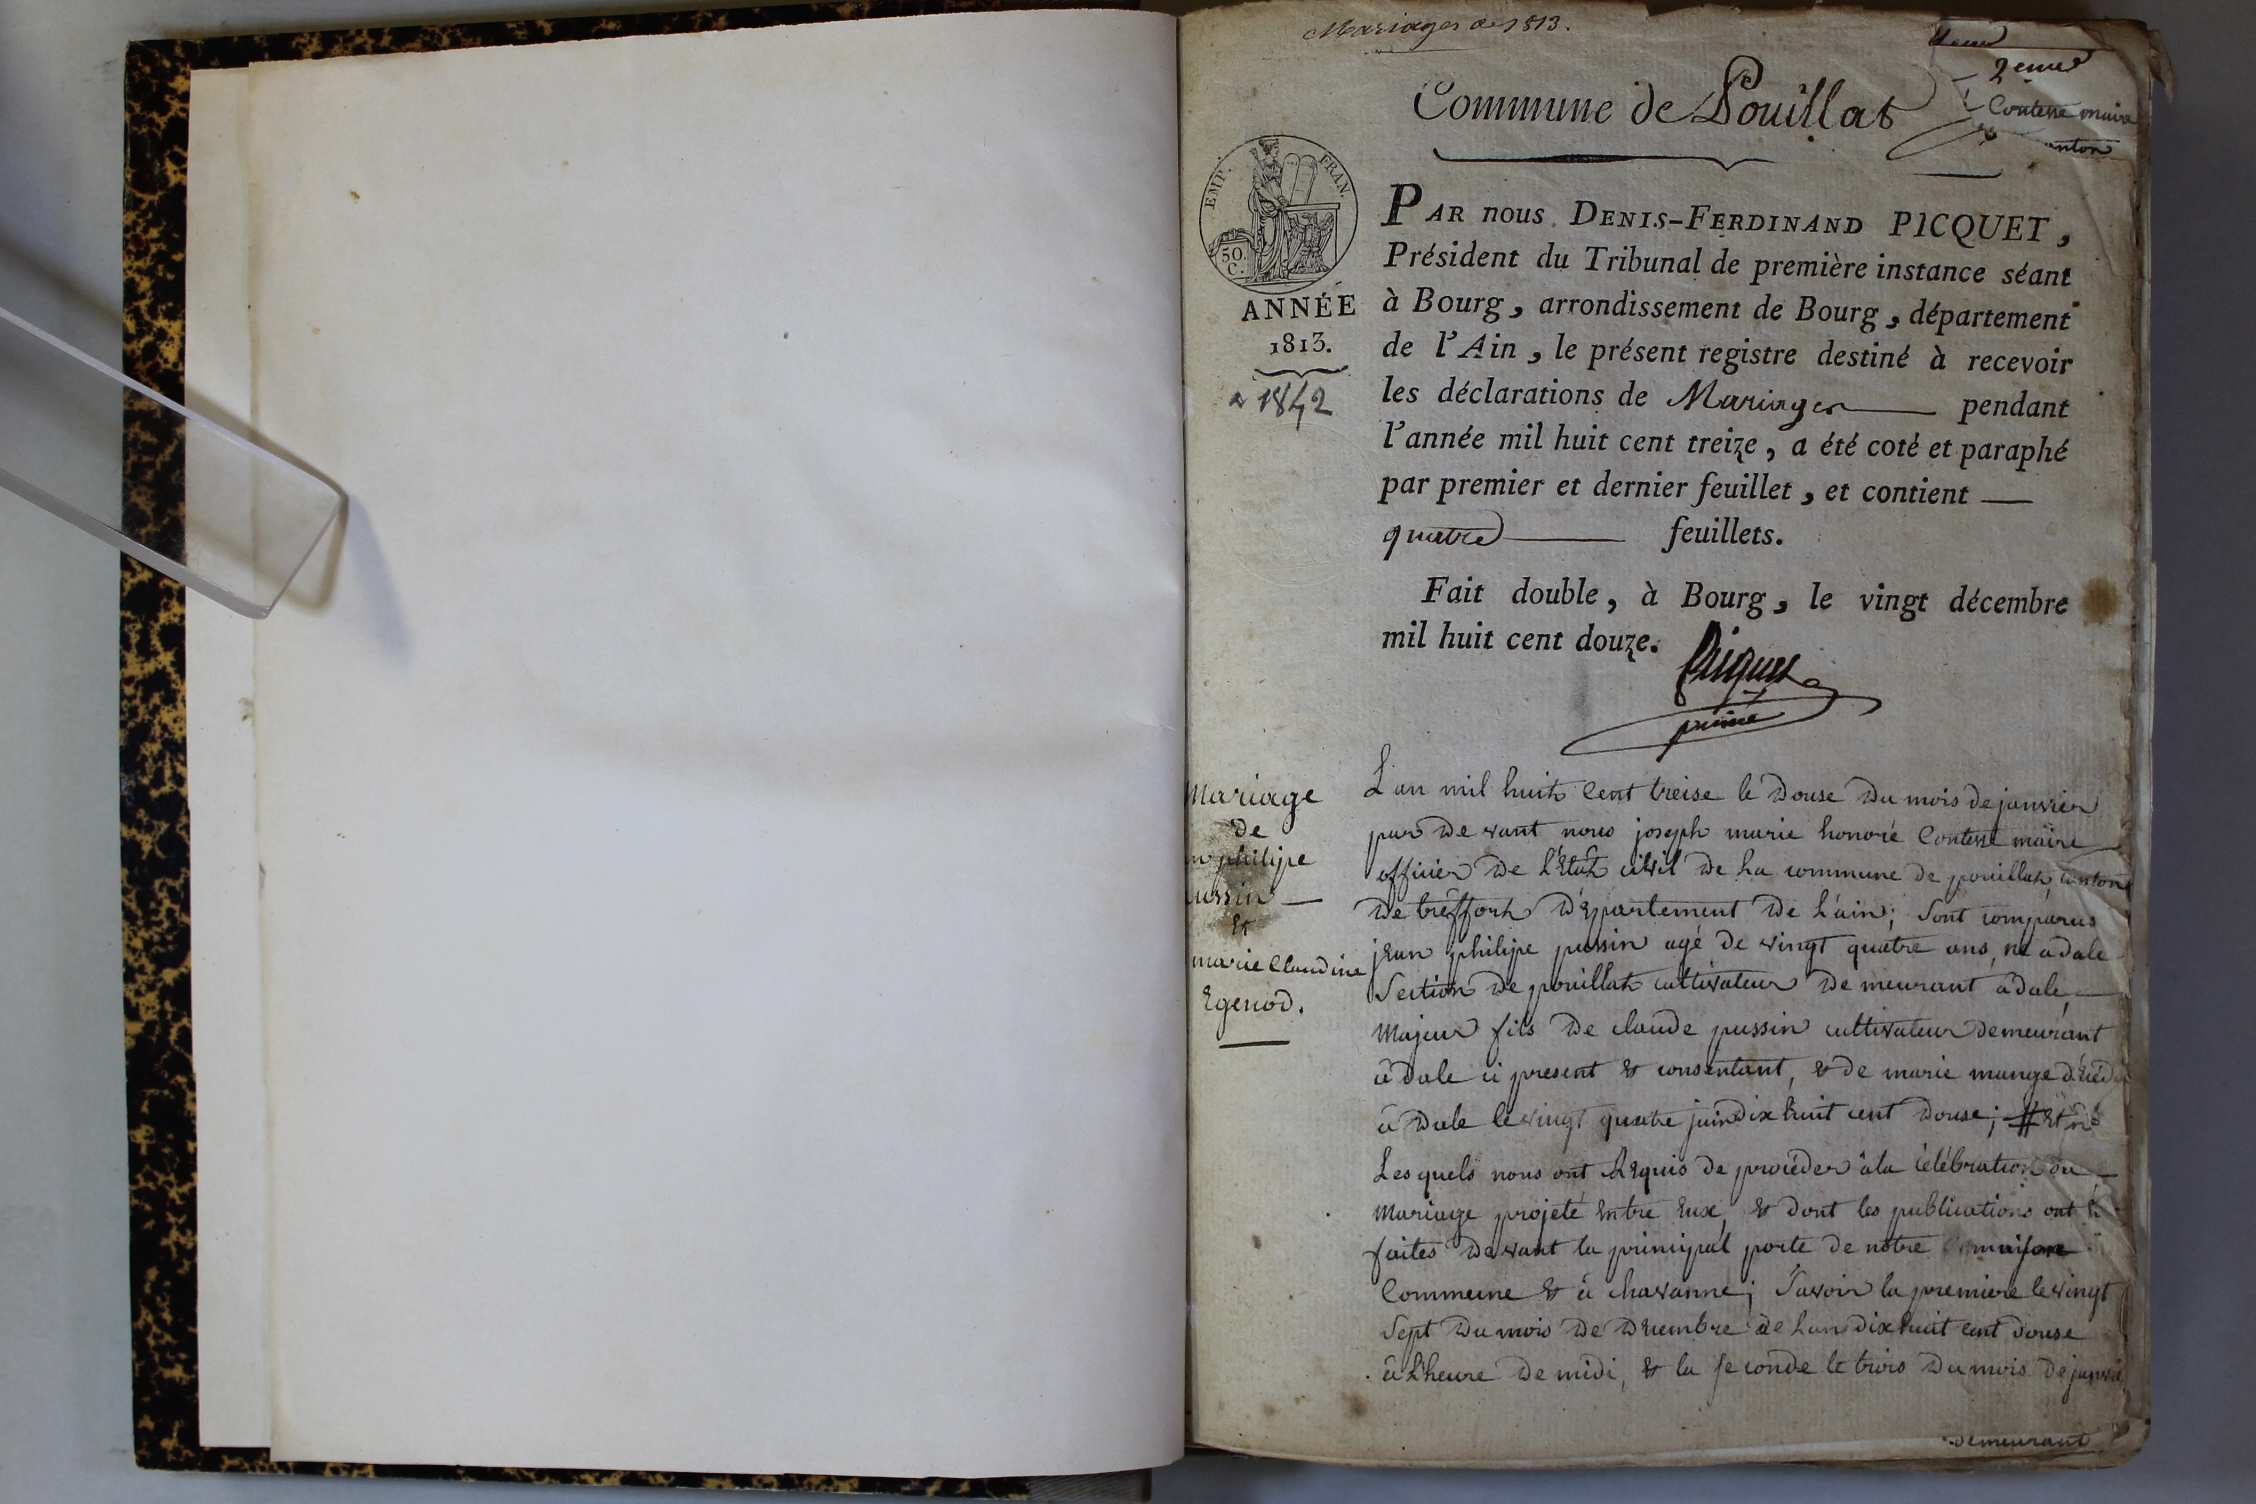 Mariages de 1813.
2eme
Contesse maire
anton
Commune de Pouillat
EMP. FRAN.
50. C.
ANNÉE
1813.
a 1842
PAR nous, DENIS-FERDINAND PICQUET,
Président du Tribunal de première instance séant
à Bourg, arrondissement de Bourg, département
de l'Ain, le présent registre destiné à recevoir
les déclarations de Mariages pendant
l'année mil huit cent treize, a été coté et paraphé
par premier et dernier feuillet, et contient —
quatre feuillets.
Fait double, à Bourg, le vingt décembre
mil huit cent douze.
Picquet
Mariage
de
philipe
ussin —
Et
marie Claudine
Egenod.
L'an mil huit Cent treise le douse du mois de janvier
par devant nous joseph marie honoré Contesse maire
officier de L'Etat civil de La commune de pouillat canton
de tréffort département de L'ain; sont comparus
jean philipe pussin agé de vingt quatre ans, né à dale
Section de pouillat cultivateur demeurant à dale, —
Majeur fils de claude pussin cultivateur demeurant
à dale ci present & consentant, & de marie mange
à dale le vingt quatre juin dix huit cent douse; Et
Lesquels nous ont Requis de procéder à la célébration du
Mariage projeté Entre Eux, & dont les publications ont
faites devant la principal porte de notre maison
Commune & à chavanne; Savoir la premiere le vingt
Sept du mois de decembre de L'an dix huit cent douse
à L'heure de midi, & la seconde le trois du mois de
demeurant